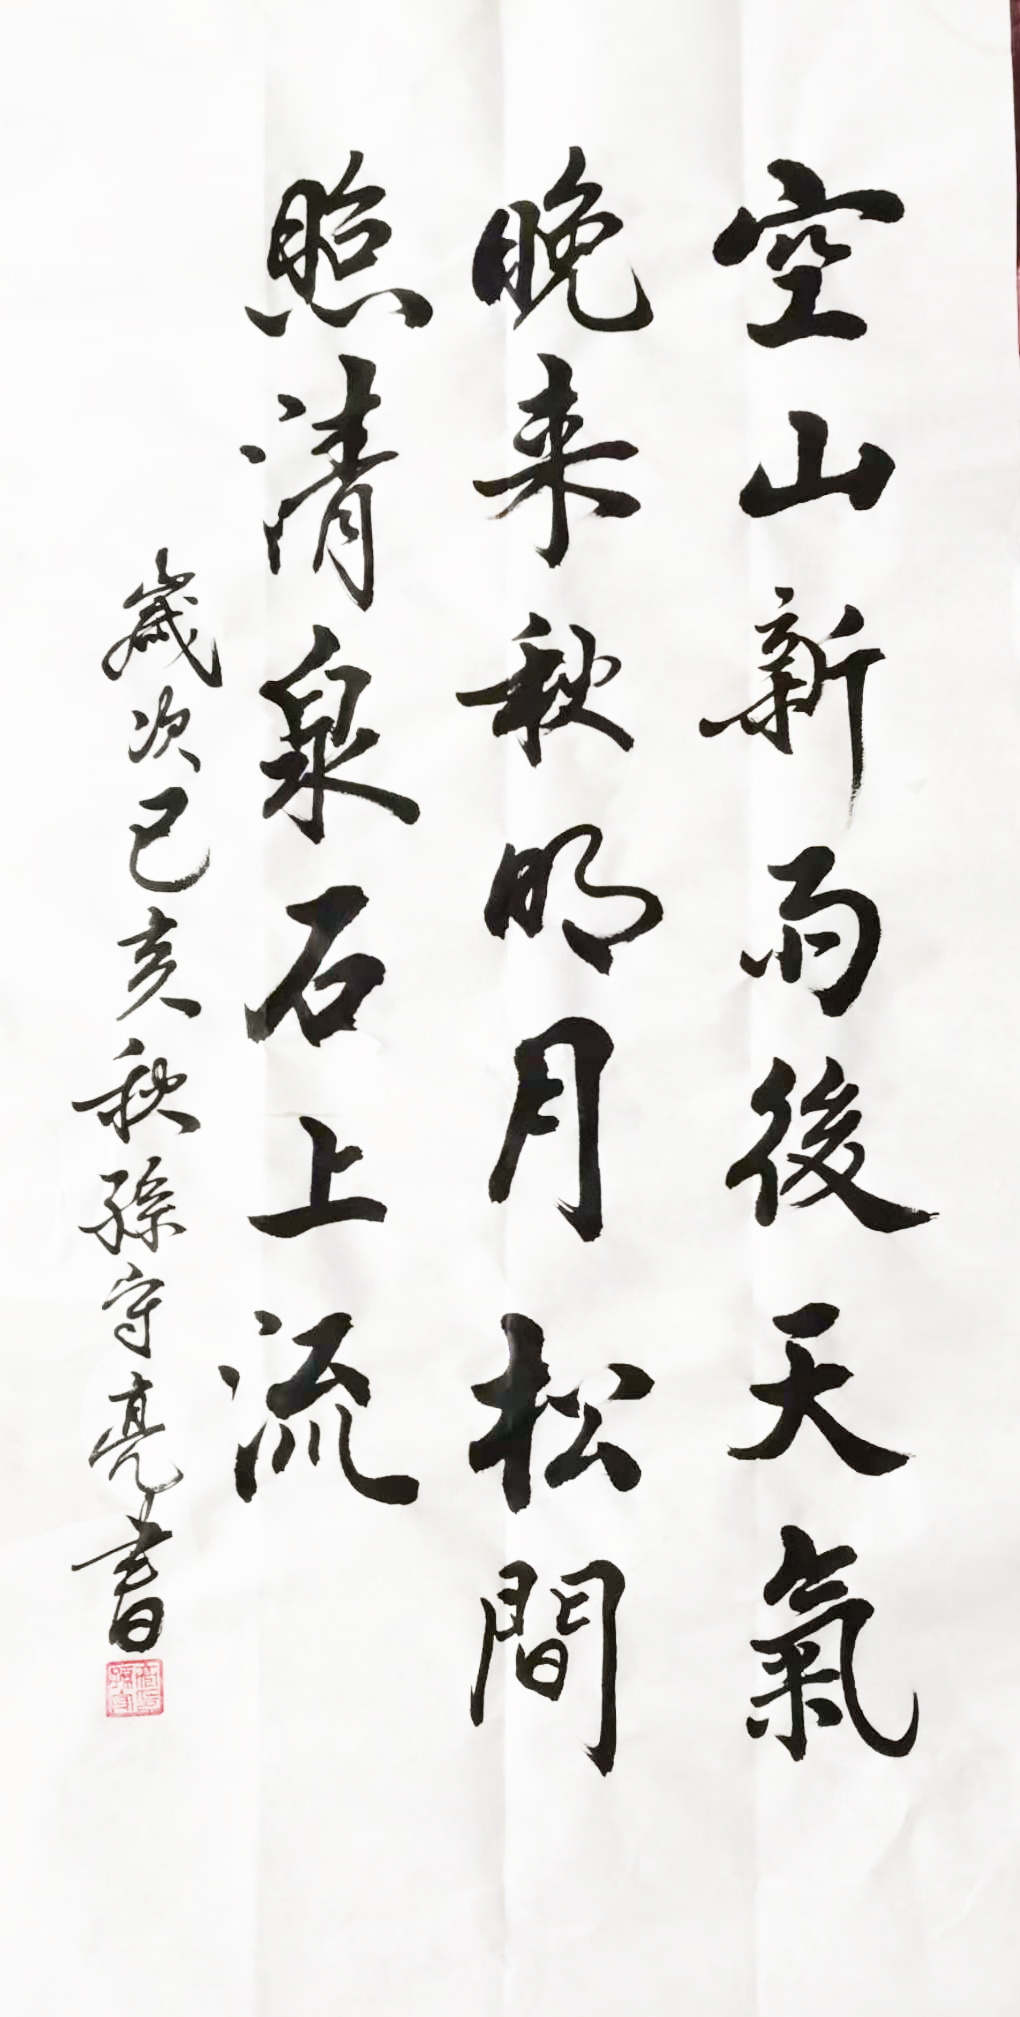 空山新雨後天氣
晚来秋明月松間
照清泉石上流
歲次己亥秋孫守亮書